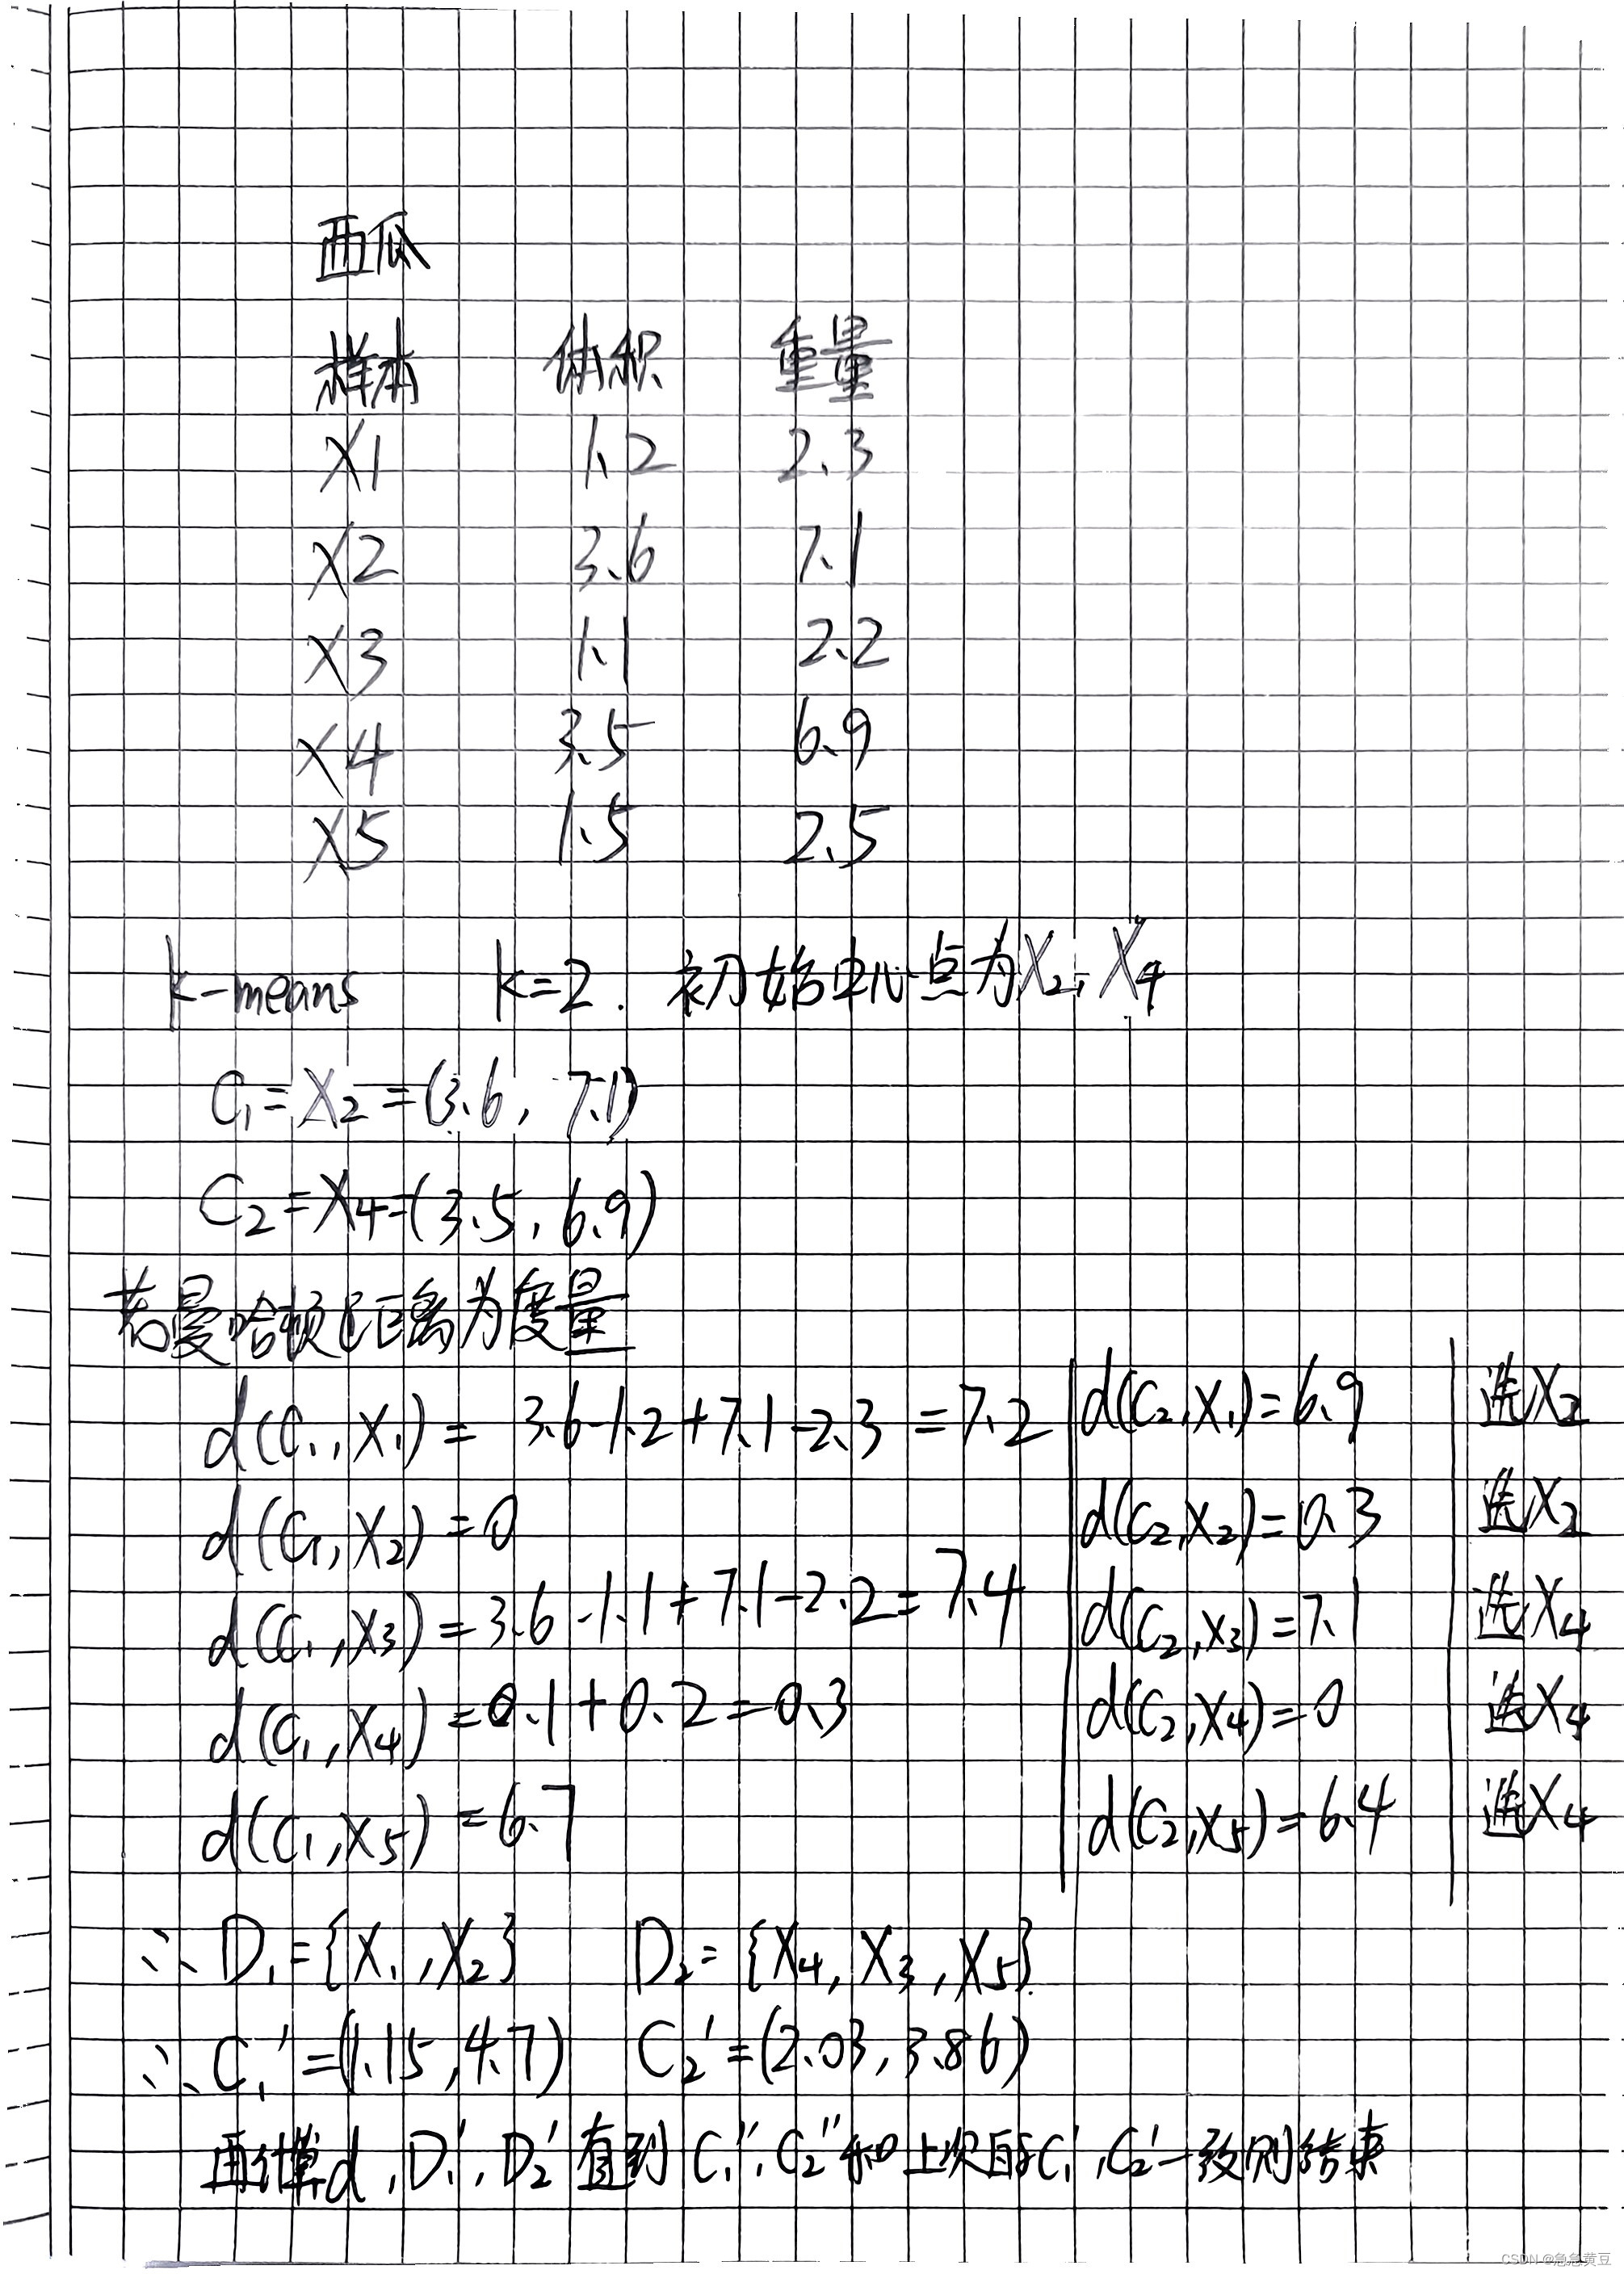 西瓜
样本 体积 重量
X1 1.2 2.3
X2 3.6 7.1
X3 1.1 2.2
X4 3.5 6.9
X5 1.5 2.5
k-means k=2. 初始中心点为X₂, X₄
C₁=X₂=(3.6, 7.1)
C₂=X₄=(3.5, 6.9)
若曼哈顿距离为度量
d(C₁,X₁)= 3.6-1.2+7.1-2.3=7.2 d(C₂,X₁)=6.9 选X₂
d(C₁,X₂)=0 d(C₂,X₂)=0.3 选X₂
d(C₁,X₃)=3.6-1.1+7.1-2.2=7.4 d(C₂,X₃)=7.1 选X₄
d(C₁,X₄)=0.1+0.2=0.3 d(C₂,X₄)=0 选X₄
d(C₁,X₅)=6.7 d(C₂,X₅)=6.4 选X₄
∴ D₁={X₁,X₂} D₂={X₄,X₃,X₅}
∴ C₁'=(1.15,4.7) C₂'=(2.03,3.86)
再计算d,D₁',D₂'直到C₁'',C₂''和上次的C₁',C₂'一致则结束
CSDN @急急黄豆